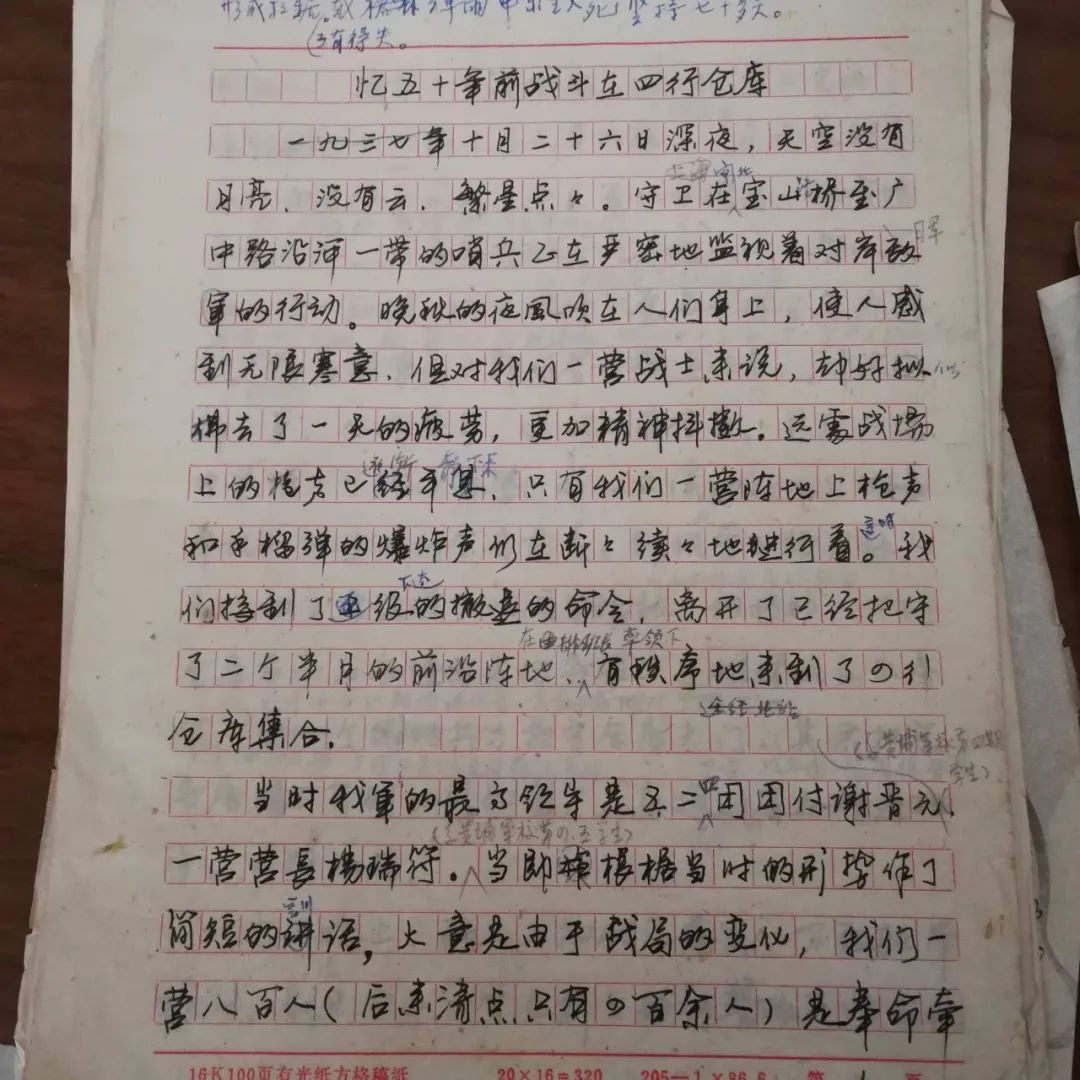 坚持七十多天。
互有得失。
忆五十年前战斗在四行仓库
一九三七年十月二十六日深夜，天空没有
上海闸北
月亮、没有云，繁星点々。守卫在宝山桥至广
日军
中路沿河一带的哨兵正在严密地监视着对岸敌
军的行动。晚秋的夜风吹在人们身上，使人感
到无限寒意，但对我们一营战士来说，却好拟似
拂去了一天的疲劳，更加精神抖擞。远处战场
逐渐
上的枪声已经平息，只有我们一营阵地上枪声
这时
和手榴弹的爆炸声仍在断々续々地进行着。我
们接到了上级的撤退的命令，离开了已经把守
在 排班长率领下
了二个半月的前沿阵地，有秩序地来到了四行
仓库集合。
(系黄埔军校第四期
学生)
当时我军的最高领导是五二四团团付谢晋元
(系黄埔军校第 学生)
一营营長楊瑞符。当即 根据当时的形势作了
训
简短的讲话，大意是由于战局的变化，我们一
营八百人(后来清点只有四百余人)是奉命牵
16K100页有光纸方格稿纸 20×16=320 205—1×86.6 第 1 页